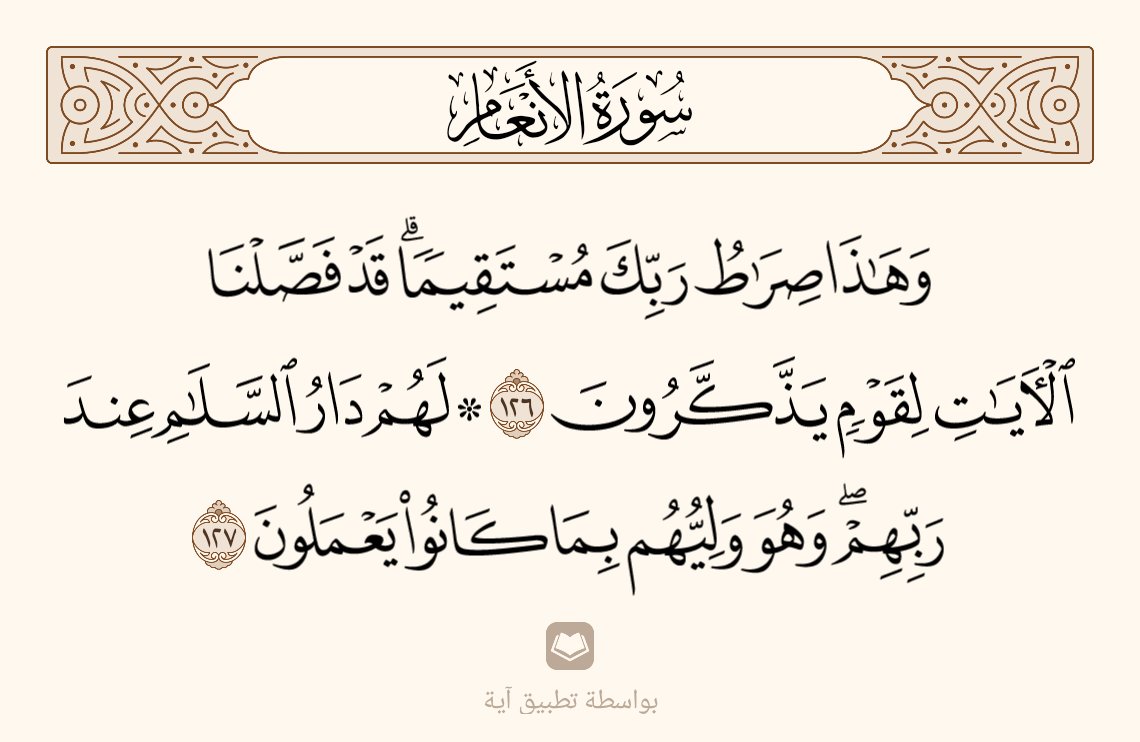 سُورَةُ الأَنْعَامِ
وَهَٰذَا صِرَٰطُ رَبِّكَ مُسۡتَقِيمٗاۗ قَدۡ فَصَّلۡنَا
ٱلۡأٓيَٰتِ لِقَوۡمٖ يَذَّكَّرُونَ ١٢٦ ۞ لَهُمۡ دَارُ ٱلسَّلَٰمِ عِندَ
رَبِّهِمۡۖ وَهُوَ وَلِيُّهُم بِمَا كَانُواْ يَعۡمَلُونَ ١٢٧
بواسطة تطبيق آية